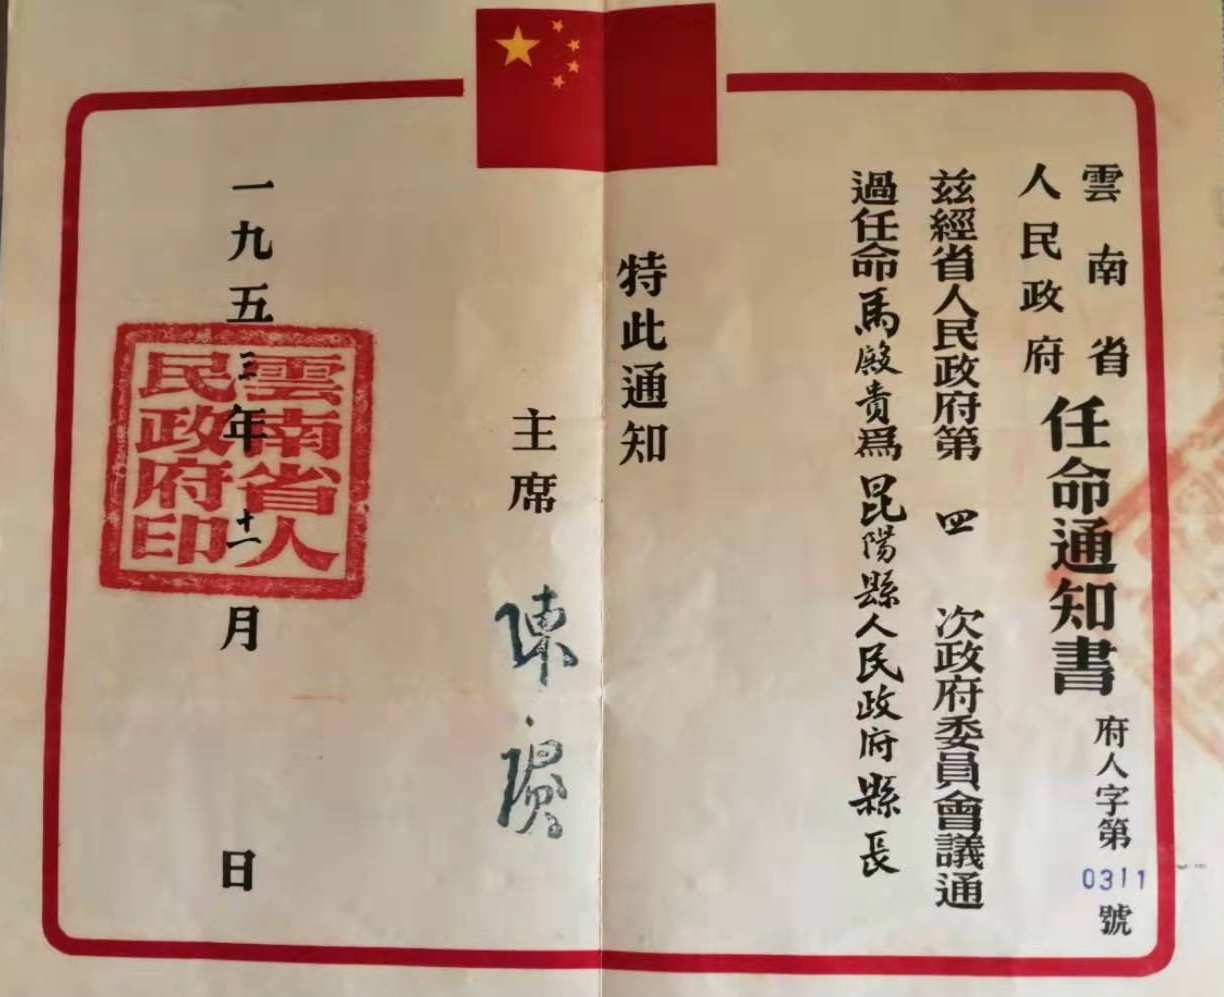 雲南省
人民政府
任命通知書
府人字第0311號
茲經省人民政府第四次政府委員會議通
過任命馬殿貴爲昆陽縣人民政府縣長
特此通知
主席 陳賡
一九五三年十一月 日
雲南省人
民政府印